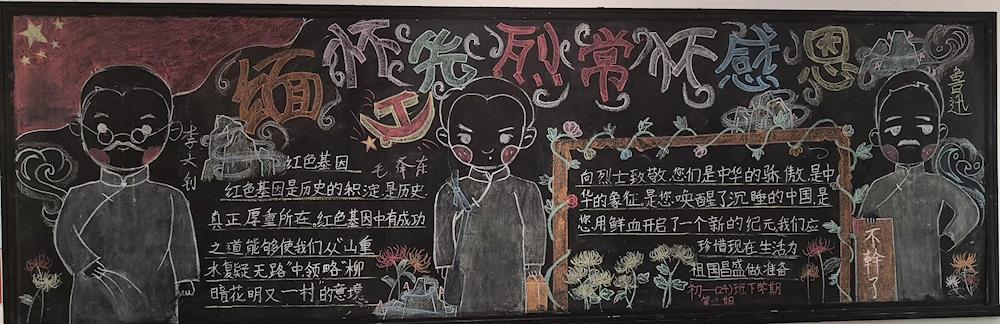 缅怀先烈常怀感恩
李大钊
红色基因
红色基因是历史的积淀是历史
真正厚重所在,红色基因中有成功
之道能够使我们从“山重
水复疑无路”中领略“柳
暗花明又一村”的意境
毛泽东
向烈士致敬.您们是中华的骄傲.是中
华的象征.是您.唤醒了沉睡的中国.是
您.用鲜血开启了一个新的纪元.我们应
珍惜现在生活力
祖国昌盛做准备
初一(24)班下学期
鲁迅
不幹了